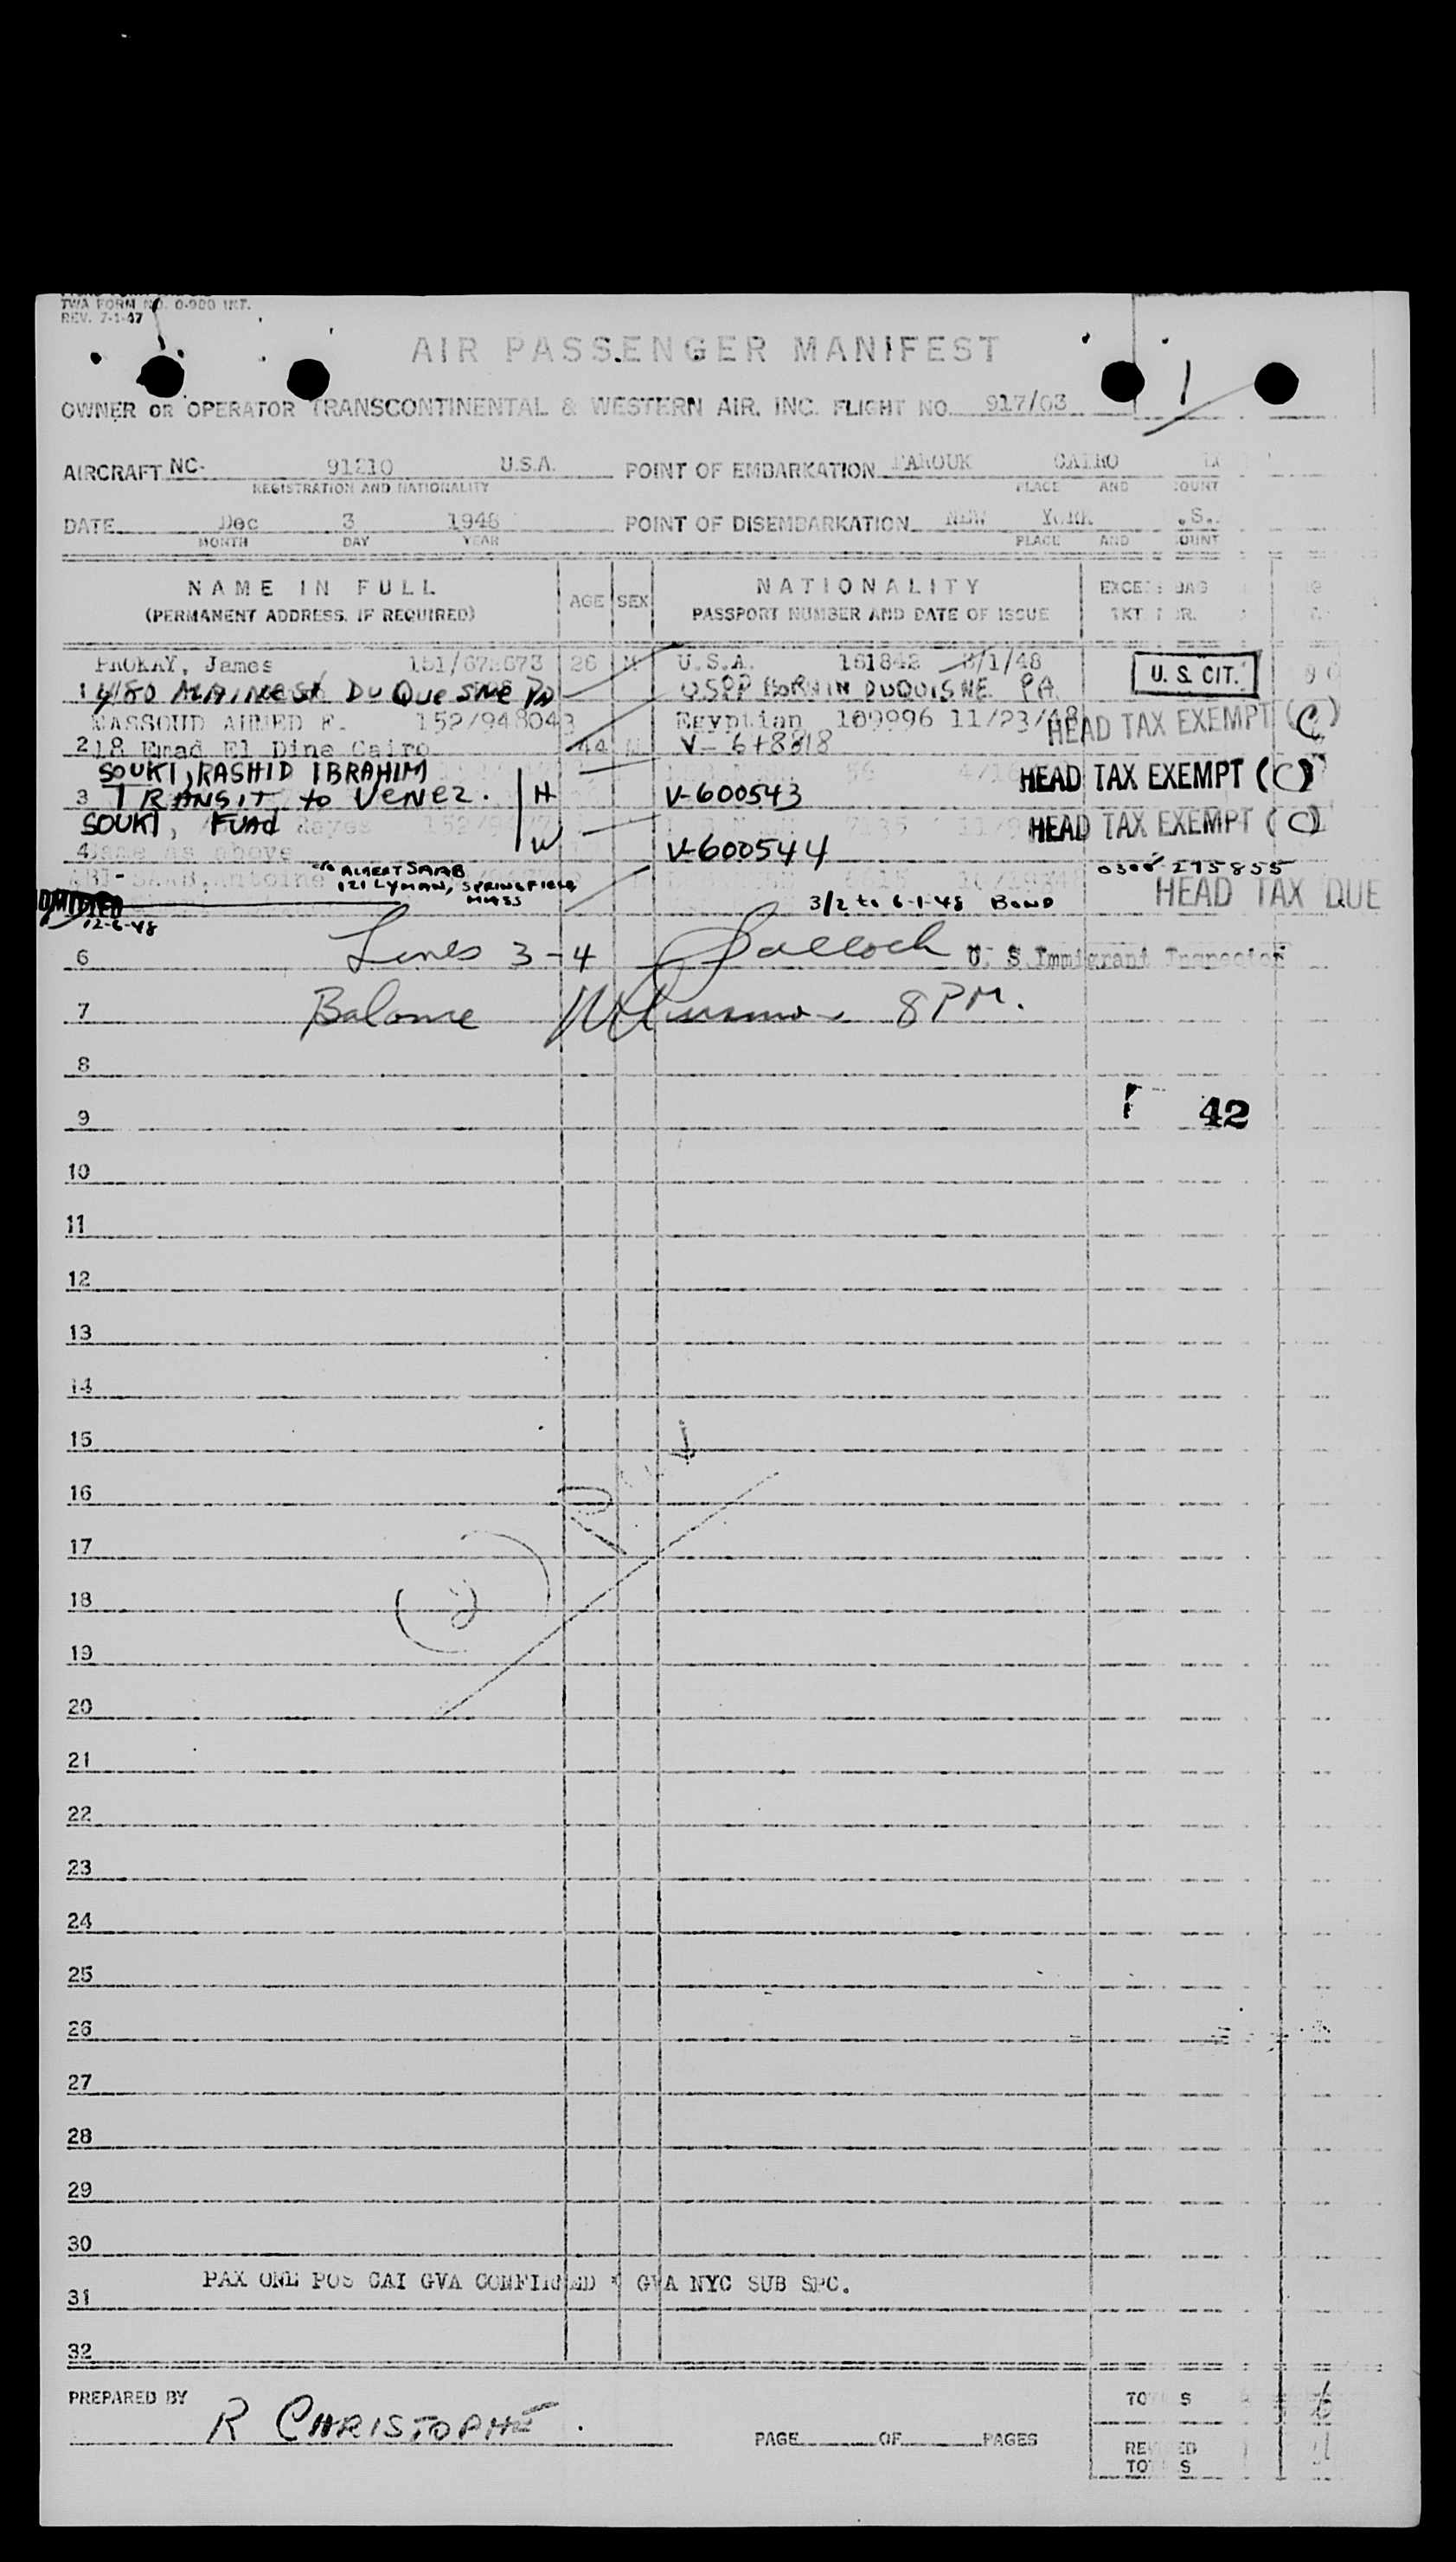 TWA FORM NO. 0-900 INT.
REV. 7-1-47
AIR PASSENGER MANIFEST
1
OWNER OR OPERATOR TRANSCONTINENTAL & WESTERN AIR, INC. FLIGHT NO. 917/03
AIRCRAFT NC- 91210 U.S.A. POINT OF EMBARKATION FAROUK CAIRO
REGISTRATION AND NATIONALITY PLACE AND COUNT
DATE Dec 3 1948 POINT OF DISEMBARKATION NEW YORK .S.
MONTH DAY YEAR PLACE AND COUNT
NAME IN FULL AGE SEX NATIONALITY EXCESS BAG
(PERMANENT ADDRESS, IF REQUIRED) PASSPORT NUMBER AND DATE OF ISSUE TKT
PROKAY, James 151/672673 26 M U.S.A. 161842 8/1/48 U. S. CIT.
1 4180 MAINE St DuQuesne PA USPP BORN IN DUQUISNE PA
MASSOUD AHMED F. 152/948043 Egyptian 109996 11/23/48 HEAD TAX EXEMPT (C)
2 18 Emad El Dine Cairo 44 M V-618818
SOUKI, RASHID IBRAHIM HEAD TAX EXEMPT (C)
3 TRANSIT to VENEZ. H V-600543
SOUKI, FUAD HEAD TAX EXEMPT (C)
4 Same as above W V-600544
ABI-SAAB, Antoine c/o ALBERT SAAB 0308-275855
121 LYMAN, SPRINGFIELD, HEAD TAX DUE
MASS 3/2 to 6-1-48 BOND
ADMITTED
12-6-48
6 Lines 3-4 U. S. Immigrant Inspector
7 Balance 8 PM.
8
9 42
10
11
12
13
14
15
16
17
18
19
20
21
22
23
24
25
26
27
28
29
30
PAX ONE POS CAI GVA CONFIRMED * GVA NYC SUB SPC.
31
32
PREPARED BY R CHRISTOPHE
TOTALS 6
PAGE OF PAGES
REVISED
TOTALS